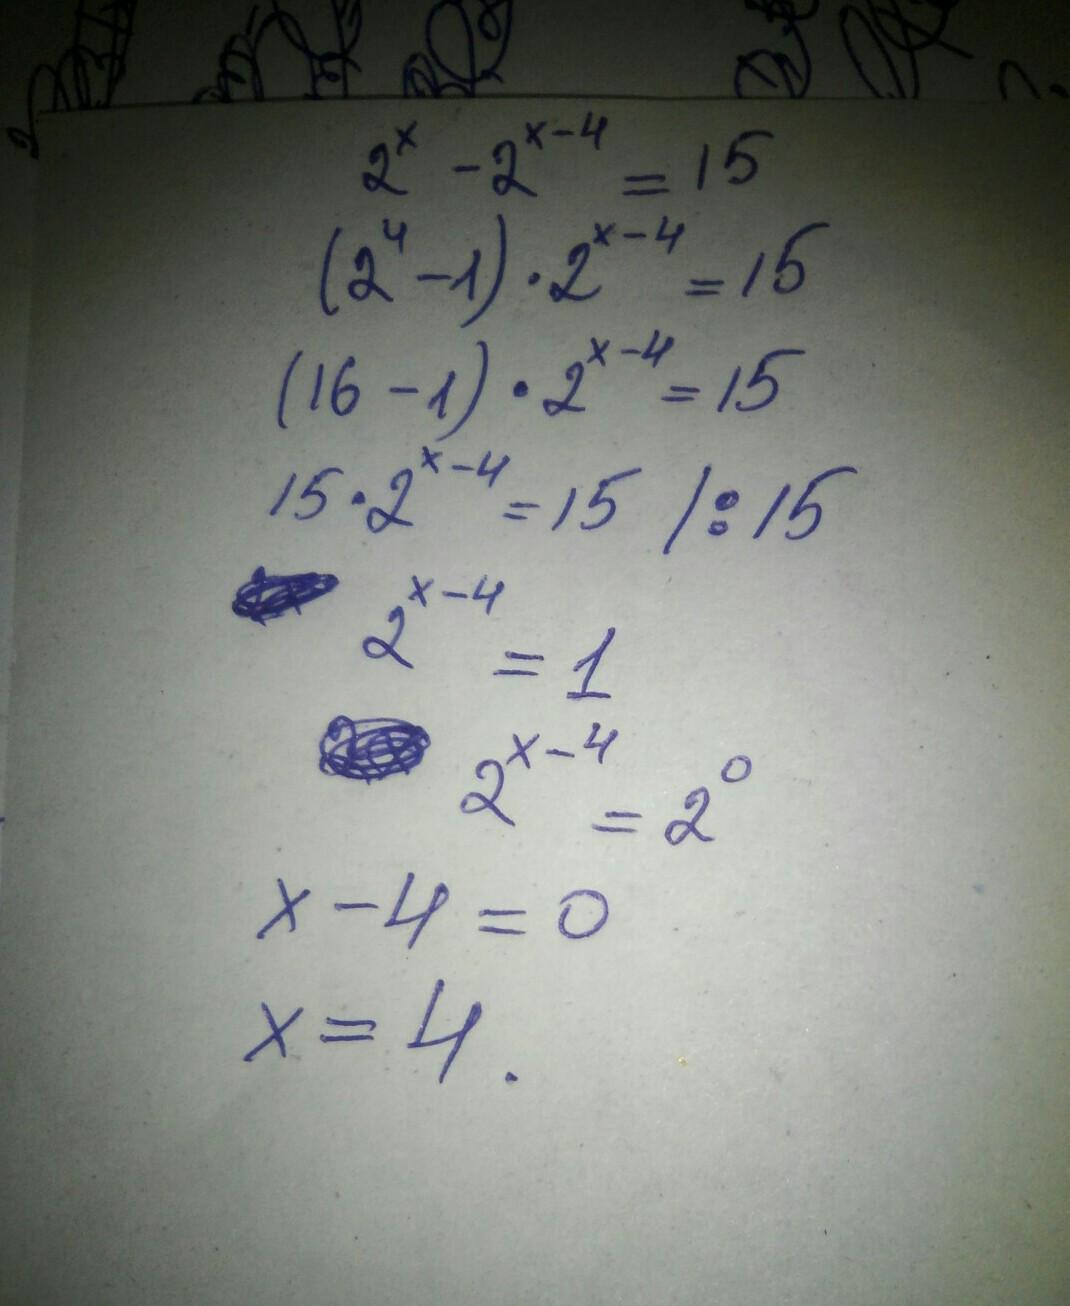 2^x - 2^{x-4} = 15
(2^4 - 1) · 2^{x-4} = 15
(16 - 1) · 2^{x-4} = 15
15 · 2^{x-4} = 15 / : 15
2^{x-4} = 1
2^{x-4} = 2^0
x - 4 = 0
x = 4.